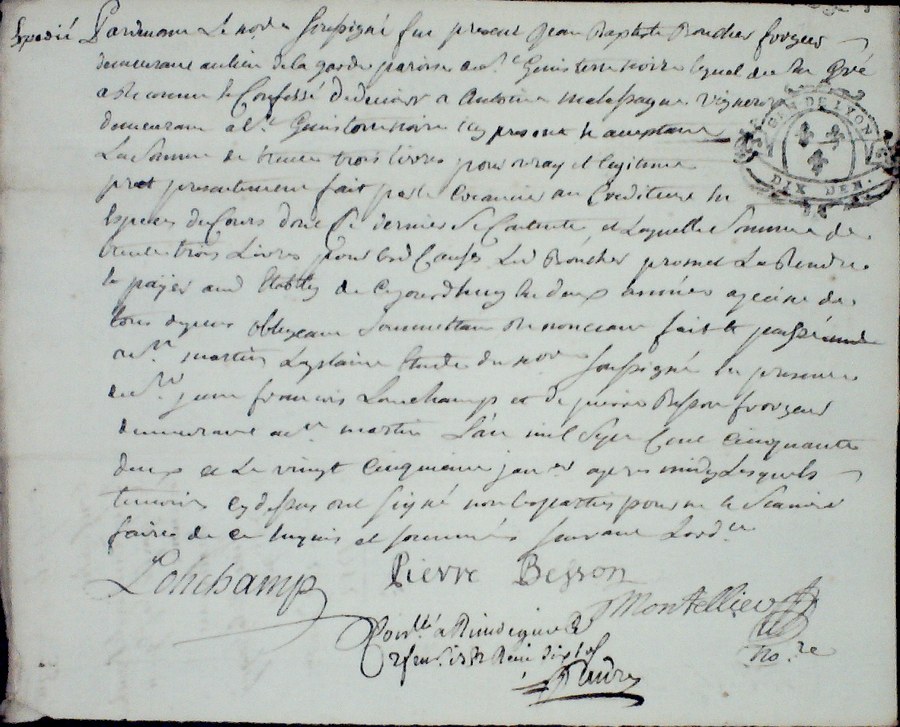 Expedié Pardevant Le no.re soussigné fut present Jean Baptiste Roncher forgeur
demeurant au lieu de la garde paroisse de s.t Genis terre noire lequel de son gré
a Reconnu & Confessé de devoir a Antoine malassagne vigneron
demeurant a s.t Genis terre noire icy present & acceptant
GEN. DE LYON
DIX DEN.
La Somme de trente trois livres pour vray et legitime
pret presentement fait par le Creancier au Crediteur En
Especes du Cours dont Ce dernier Se Contente, et laquelle Somme de
trente trois Livres pour les Causes Led Roncher promet La Rendre
& payer aud de Cejourdhuy En deux années a peine de
tous depens obligeant Soumettant Renonceant fait & passé aud
s.t martin Laplaine Etude du no.re soussigné En presence
de s.r jean francois Lonchamp et de pierre Besson forgeur
demeurant a s.t martin L'an mil Sept Cent Cinquante
deux et Le vingt Cinquieme jan.er apres midy Lesquels
temoins cy dessus ont signé non les parties pour ne le Scavoir
faire de ce Enquis et sommés suivant Lord.ce
Lonchamp Pierre Besson
Montellier
No.re
Con.llé a Rivedegier le